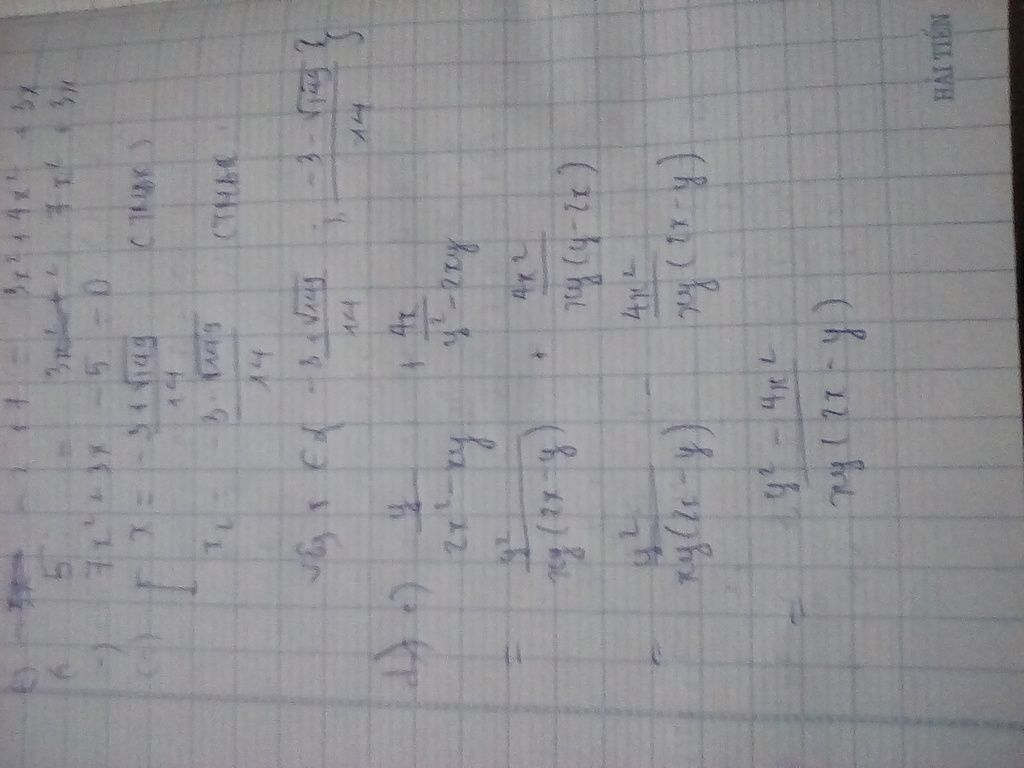 5 = 7x² + 3x
7x² + 3x - 5 = 0
x = -3 + √149 / 14 (TMĐK)
x₂ = -3 - √149 / 14 (TMĐK
Vậy x ∈ { -3 + √149 / 14 ; -3 - √149 / 14 }
y / 2x² - xy + 4x / y² - 2xy
= y² / xy(2x - y) + 4x² / xy(y - 2x)
= y² / xy(2x - y) - 4x² / xy(2x - y)
= y² - 4x² / xy(2x - y)
HẢI TIẾN